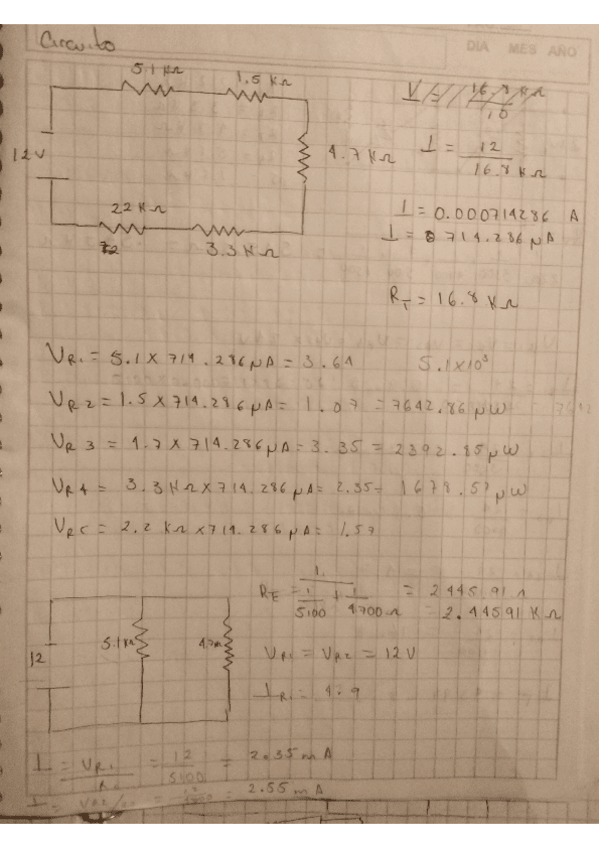 Circuito
DIA MES AÑO
5.1 KΩ
1.5 KΩ
12V
4.7 KΩ
22 KΩ
3.3 KΩ
I = 12 / 16.8 KΩ
I = 0.000714286 A
I = 714.286 μA
R_T = 16.8 KΩ
V_R1 = 5.1 x 714.286 μA = 3.64
5.1x10³
V_R2 = 1.5 x 714.286 μA = 1.07 = 7642.86 μW
V_R3 = 4.7 x 714.286 μA = 3.35 = 2392.85 μW
V_R4 = 3.3 KΩ x 714.286 μA = 2.35 = 1678.57 μW
= 2.2 KΩ x 714.286 μA = 1.57
R_E = 1 / (1/5100 + 1/4700Ω) = 2445.91 Ω
= 2.44591 KΩ
12
5.1KΩ
V_R1 = V_R2 = 12V
I_R1 = 4.9
I = V_R1 / = 12 / 5100 = 2.35 mA
= 2.55 mA